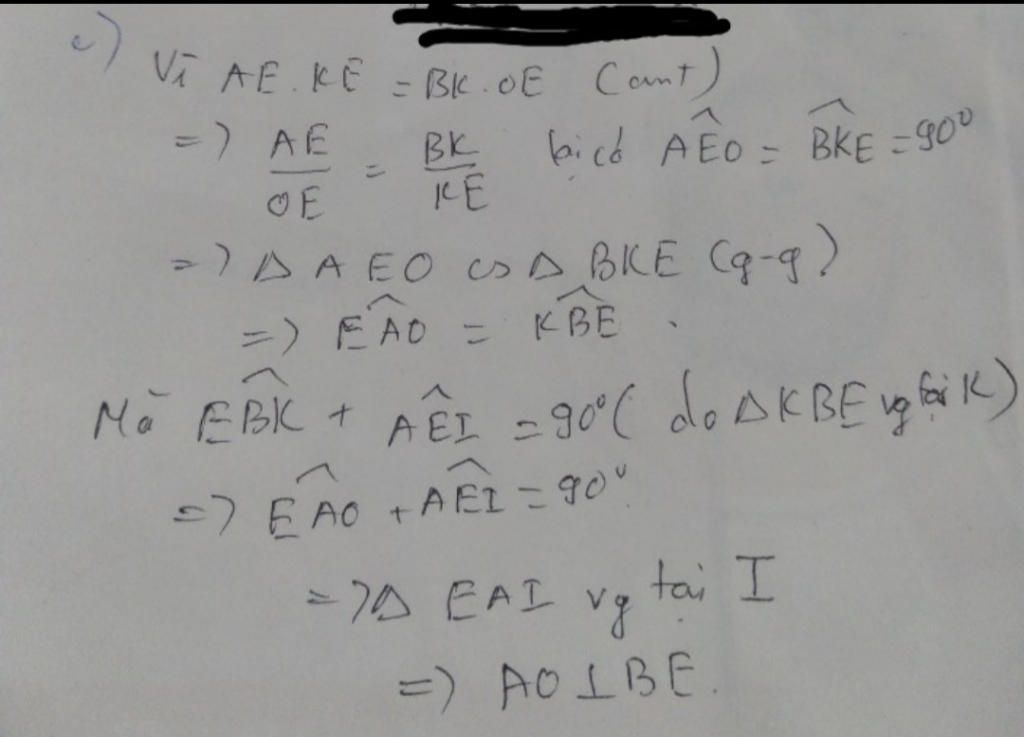 c)
Vì AE.KE = BK.OE (cmt)
=> AE/OE = BK/KE lại có ∠AEO = ∠BKE = 90°
=> Δ AEO ∽ Δ BKE (g-g)
=> ∠EAO = ∠KBE.
Mà ∠EBK + ∠AEI = 90° (do Δ KBE vg tại K)
=> ∠EAO + ∠AEI = 90°
=> Δ EAI vg tại I
=> AO ⊥ BE.